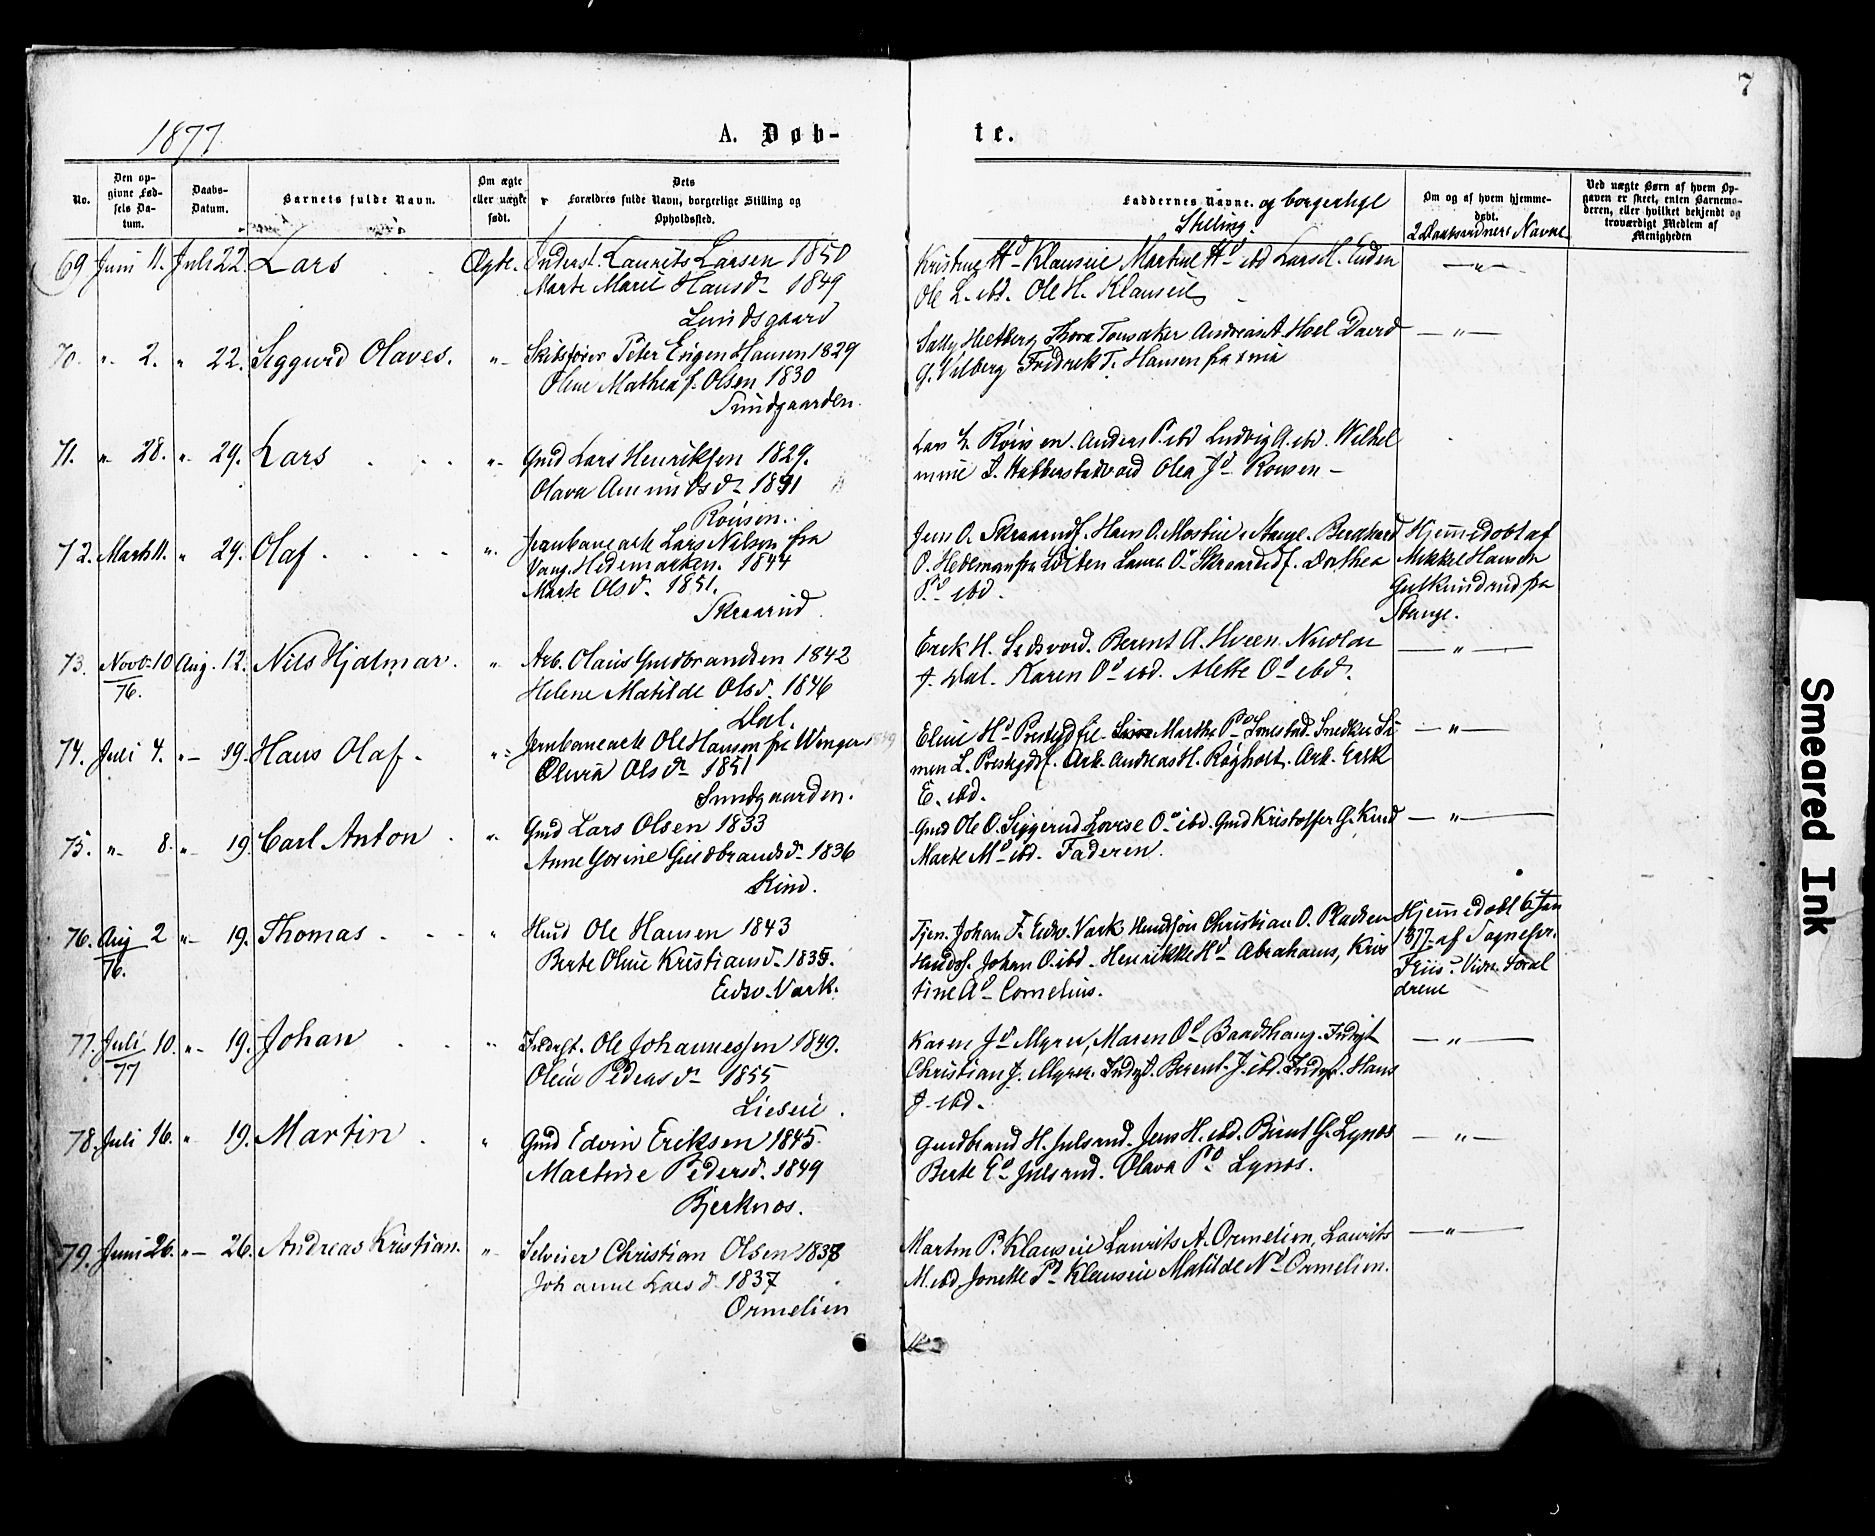 7
1877
A. Døb-
te.
No.
Den op-
givne Fød-
sels Da-
tum.
Daabs-
Datum.
Barnets fulde Navn.
Om ægte
eller uægte
født.
Dets
Forældres fulde Navn, borgerlige Stilling og
Opholdssted.
Faddernes Navne. og borgerlige
Stilling.
Om og af hvem hjemme-
døbt.
2 Navne
Ved uægte Børn af hvem Op-
gaven er skeet, enten Barnemo-
deren, eller hvilket bekjendt og
troværdigt Medlem af
Menigheden
69 Juni 11. Juli 22. Lars Ægte. Inderst. Laurits Larsen 1850
Marte Marie Hansd. 1849
Lundsgaard
Kristine Hd. Klauseie Martine Hd. ibd Lars H. Enden
Ole L. ibd. Ole H. Klauseie
— „ —
70. „ 2. „ 22. Siggurd Olaves. „ Peter Hansen 1829
Oline Mathea f. Olsen 1830
Sundgaarden.
Sally Hetberg Thora Tonsaker Andreas A. Hoel David
G. Vilberg Fredrik T. Hansen fra
— „ —
71. „ 28. „ 29. Lars „ Gmd Lars Henriksen 1829.
Olava Amundsd. 1831
Røisen.
Lars L. Røisen. Anders P. ibd Ludvig A. ibd. Wilhel
mine Olea Jd.
72. Marts 11. „ 29. Olaf „ Jernbanearb Lars Nilsen fra
Vang. Hedemarken. 1844
Marte Olsd. 1851.
Skraarud.
Jens O. Skraarudf. Hans O. Stange. Bernhard
O. fra Løiten Laura Od. Skraarudf. Dorthea
Pd. ibd.
Hjemmedøbt af
Mikkel Hansen
fra
Stange.
73. Novb. 10 Aug. 12. Nils Hjalmar. „ Arb. Olaus Gudbrandsen 1842
76.
Helene Matilde Olsd. 1846
Dal.
Erik H. Berent A. Hveen. Nicolai
J. Dal. Karen Od. ibd. Mette Od. ibd.
— „ —
74. Juli 4. „ 19. Hans Olaf. „ Jernbanearb Ole Hansen fra Winger 1849
Olivia Olsd. 1851
Sundgaarden.
Eline Hd. Martha Pd. Snedker Si
men L. Prestgdsf. Arb. Andreas H. Røgholt. Arb. Erik
E. ibd.
— „ —
75. „ 8. „ 19. Carl Anton „ Gmd Lars Olsen 1833
Anne Gorine Guldbrandsd. 1836
Kind.
Gmd Ole O. Siggerud Lovise Od. ibd. Gmd Kristoffer G. Kind
Marte Md. ibd. Faderen.
— „ —
76. Aug 2 „ 19. Thomas „ Hmd Ole Hansen 1843
76.
Berte Oline Kristiansd. 1835.
Eidsv. Værk.
Tjen. Johan F. Eidsv. Værk Christian O. Pladsen
Johan O. ibd. Henrikke Hd. Abrahams, Kris
tine Ad. Cornelius.
Hjemmedøbt 6 Jan
1877 af Sognepr.
Friis. Vidn. Foræl
drene
77. Juli 10. „ 19. Johan „ Indgt. Ole Johannessen 1849.
77
Oline Pedersd. 1855
Lieseie.
Karen Jd. Myrer, Maren Od. Baadshaug. Indgt
Christian J. Myrer. Indgt. Berent J. ibd. Indgt. Hans
J. ibd.
— „ —
78. Juli 16. „ 19. Martin „ Gmd Edvin Eriksen 1845.
Martine Pedersd. 1849
Bjerknos.
Gundbrand H. Julsrud. Jens H. ibd. Bernt G. Lynos
Berte Ed. Julsrud. Olava Pd. Lynos.
— „ —
79. Juni 26. „ 26. Andreas Kristian. „ Selveier Christian Olsen 1838
Johanne Larsd. 1837
Ormelien
Martin P. Klauseie Laurits A. Ormelien, Laurits
M. ibd Jonette Pd. Klauseie Matilde Nd. Ormelien.
— „ —
Smeared Ink